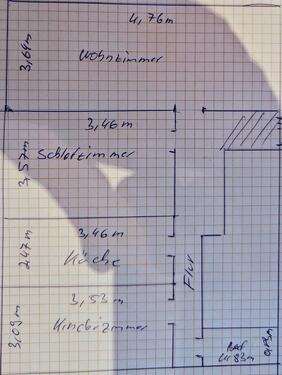 4,76m
3,64m
Wohnzimmer
3,46m
3,57m
Schlafzimmer
3,46m
2,47m
Küche
Flur
3,53m
Kinderzimmer
3,09m
Bad